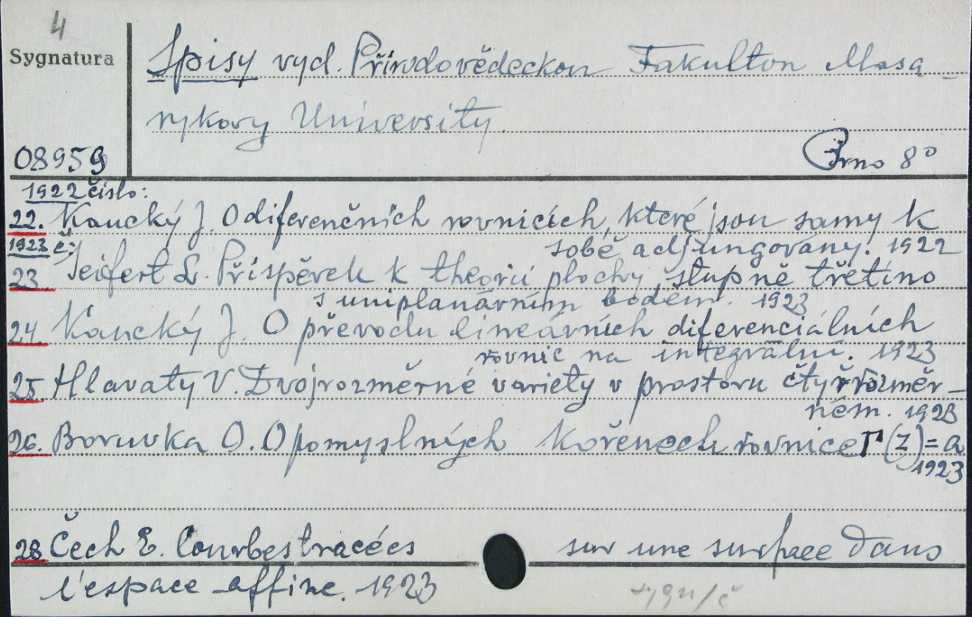 4
Sygnatura
Spisy vyd. Přírodovědeckou Fakultou Masa-
rykovy University.
08959
Brno 8°
1922 číslo:
22. Kaucký J. O diferenčních rovnicích, které jsou samy k
sobě adjungovány. 1922
1923 č:
23 Seifert L. Příspěvek k theorii plochy stupně třetího
s uniplanárním bodem. 1923
24. Kaucký J. O převodu lineárních diferenciálních
rovnic na integrální. 1923
25. Hlavatý V. Dvojrozměrné variety v prostoru čtyřrozměr-
ném. 1923
26. Boruvka O. O pomyslných kořenech rovnice Γ(z)=a
1923
28 Čech E. Courbes tracées sur une surface dans
l'espace affine. 1923